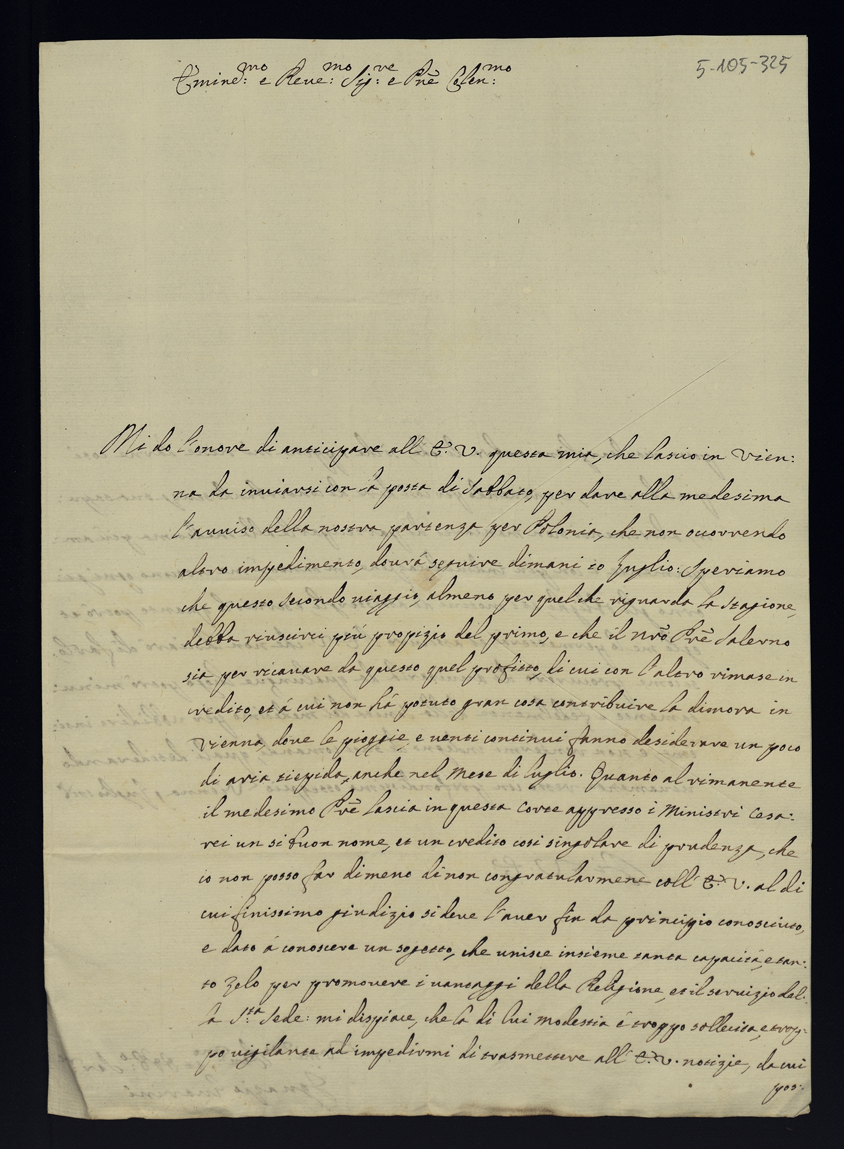 Emine:mo e Reve:mo Sig:re e Prne Colen:mo
5-105-325
Mi do l'onore di anticipare all'E. V. questa mia, che lascio in Vien:
na da inviarsi con la posta di Sabbato, per dare alla medesima
l'avviso della nostra partenza per Polonia, che non ocorrendo
altro impedimento, dourà seguire dimani 10 luglio: Speriamo
che questo secondo viaggio, almeno per quel che riguarda la stagione,
debba riuscirci più propizio del primo, e che il nro Pre Salerno
sia per ricavare da questo quel profitto, di cui con l'altro rimase in
credito, et à cui non hà potuto gran cosa contribuire la dimora in
Vienna, dove le pioggie, e venti continui fanno desiderare un poco
di aria tiepida, anche nel Mese di luglio. Quanto al rimanente
il medesimo Pre lascia in questa Corte appresso i Ministri Cesa:
rei un si buon nome, et un credito cosi singolare di prudenza, che
io non posso far dimeno di non congratularmene coll'E. V. al di
cui finissimo giudizio si deve l'aver fin da principio conosciuto,
e dato à conoscere un sogetto, che unisce insieme tanta capacità, e tan:
to zelo per promovere i vantaggi della Religione, et il servizio del:
la S.ta Sede: mi dispiace, che la di lui modestia è troppo sollecita, e trop:
po vigilante ad impedirmi di trasmettere all'E. V. notizie, da cui
pos: